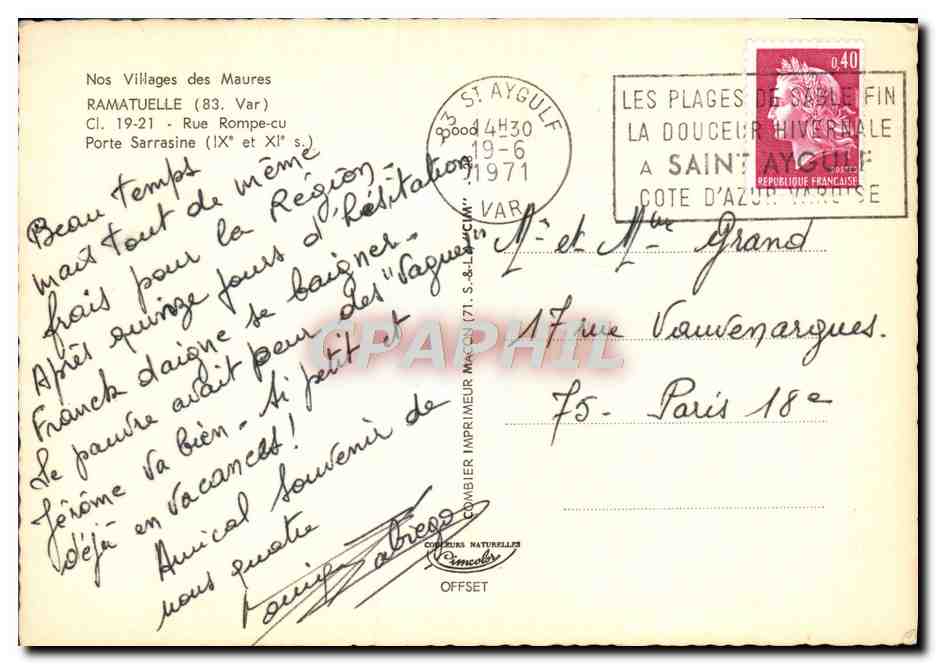 Nos Villages des Maures
RAMATUELLE (83. Var)
Cl. 19-21 - Rue Rompe-cu
Porte Sarrasine (IXe et XIe s.)
Beau temps
mais tout de même
frais pour la Région -
Après quinze jours d'hésitation
Franck daigne se baigner -
Le pauvre avait peur des "Vagues"
Jérôme va bien - Si petit et
déjà en vacances !
Amical Souvenir de
nous quatre
83 ST AYGULF
14H30
19-6
1971
VAR
LES PLAGES DE SABLE FIN
LA DOUCEUR HIVERNALE
A SAINT AYGULF
COTE D'AZUR VAROISE
0,40
REPUBLIQUE FRANÇAISE
Mr et Mme Grand
17 rue Vauvenargues.
75 - Paris 18e
COMBIER IMPRIMEUR MACON (71. S.-&-L.) "CIM"
COULEURS NATURELLES
Cimcolor
OFFSET
CPAPHIL